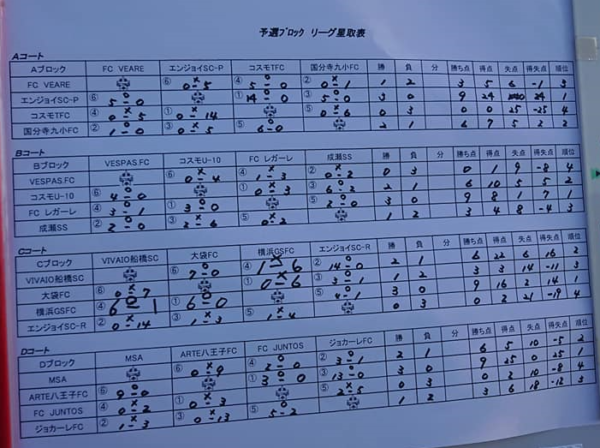 予選ブロック リーグ星取表
Aコート
Aブロック FC VEARE エンジョイSC-P コスモTFC 国分寺九小FC 勝 負 分 勝ち点 得点 失点 得失点 順位
FC VEARE ⑥ × 0-5 ④ ○ 5-0 ② × 0-1 1 2 3 5 6 -1 3
エンジョイSC-P ⑥ ○ 5-0 ① ○ 14-0 ③ ○ 5-0 3 0 9 24 24 1
コスモTFC ④ × 0-5 ① × 0-14 ⑤ × 0-6 0 3 0 0 25 -25 4
国分寺九小FC ② ○ 1-0 ③ × 0-5 ⑤ ○ 6-0 2 1 6 7 5 2 2
Bコート
Bブロック VESPAS.FC コスモU-10 FC レガーレ 成瀬SS 勝 負 分 勝ち点 得点 失点 得失点 順位
VESPAS.FC ⑥ × 0-4 ④ × 1-3 ② × 0-2 0 3 0 1 9 -8 4
コスモU-10 ⑥ ○ 4-0 ① × 0-3 ③ ○ 6-2 2 1 6 10 5 5 2
FC レガーレ ④ ○ 3-1 ① ○ 3-0 ⑤ ○ 2-0 3 0 9 8 1 7 1
成瀬SS ② ○ 2-0 ③ × 2-6 ⑤ × 0-2 1 2 3 4 8 -4 3
Cコート
Cブロック VIVAIO船橋SC 大袋FC 横浜GSFC エンジョイSC-R 勝 負 分 勝ち点 得点 失点 得失点 順位
VIVAIO船橋SC ⑥ ○ 7-0 ④ × 1-6 ② ○ 14-0 2 1 6 22 6 16 2
大袋FC ⑥ × 0-7 ① × 0-6 ③ ○ 3-1 1 2 3 3 14 -11 3
横浜GSFC ④ ○ 6-1 ① ○ 6-0 ⑤ ○ 4-1 3 0 9 16 2 14 1
エンジョイSC-R ② × 0-14 ③ × 1-3 ⑤ × 1-4 0 3 0 2 21 -19 4
Dコート
Dブロック MSA ARTE八王子FC FC JUNTOS ジョカーレFC 勝 負 分 勝ち点 得点 失点 得失点 順位
MSA ⑥ × 0-9 ④ ○ 2-0 ② ○ 3-1 2 1 6 5 10 -5 2
ARTE八王子FC ⑥ ○ 9-0 ① ○ 3-0 ③ ○ 13-0 3 0 9 25 0 25 1
FC JUNTOS ④ × 0-2 ① × 0-3 ⑤ × 2-5 0 3 0 2 10 -8 4
ジョカーレFC ② × 1-3 ③ × 0-13 ⑤ ○ 5-2 1 2 3 6 18 -12 3